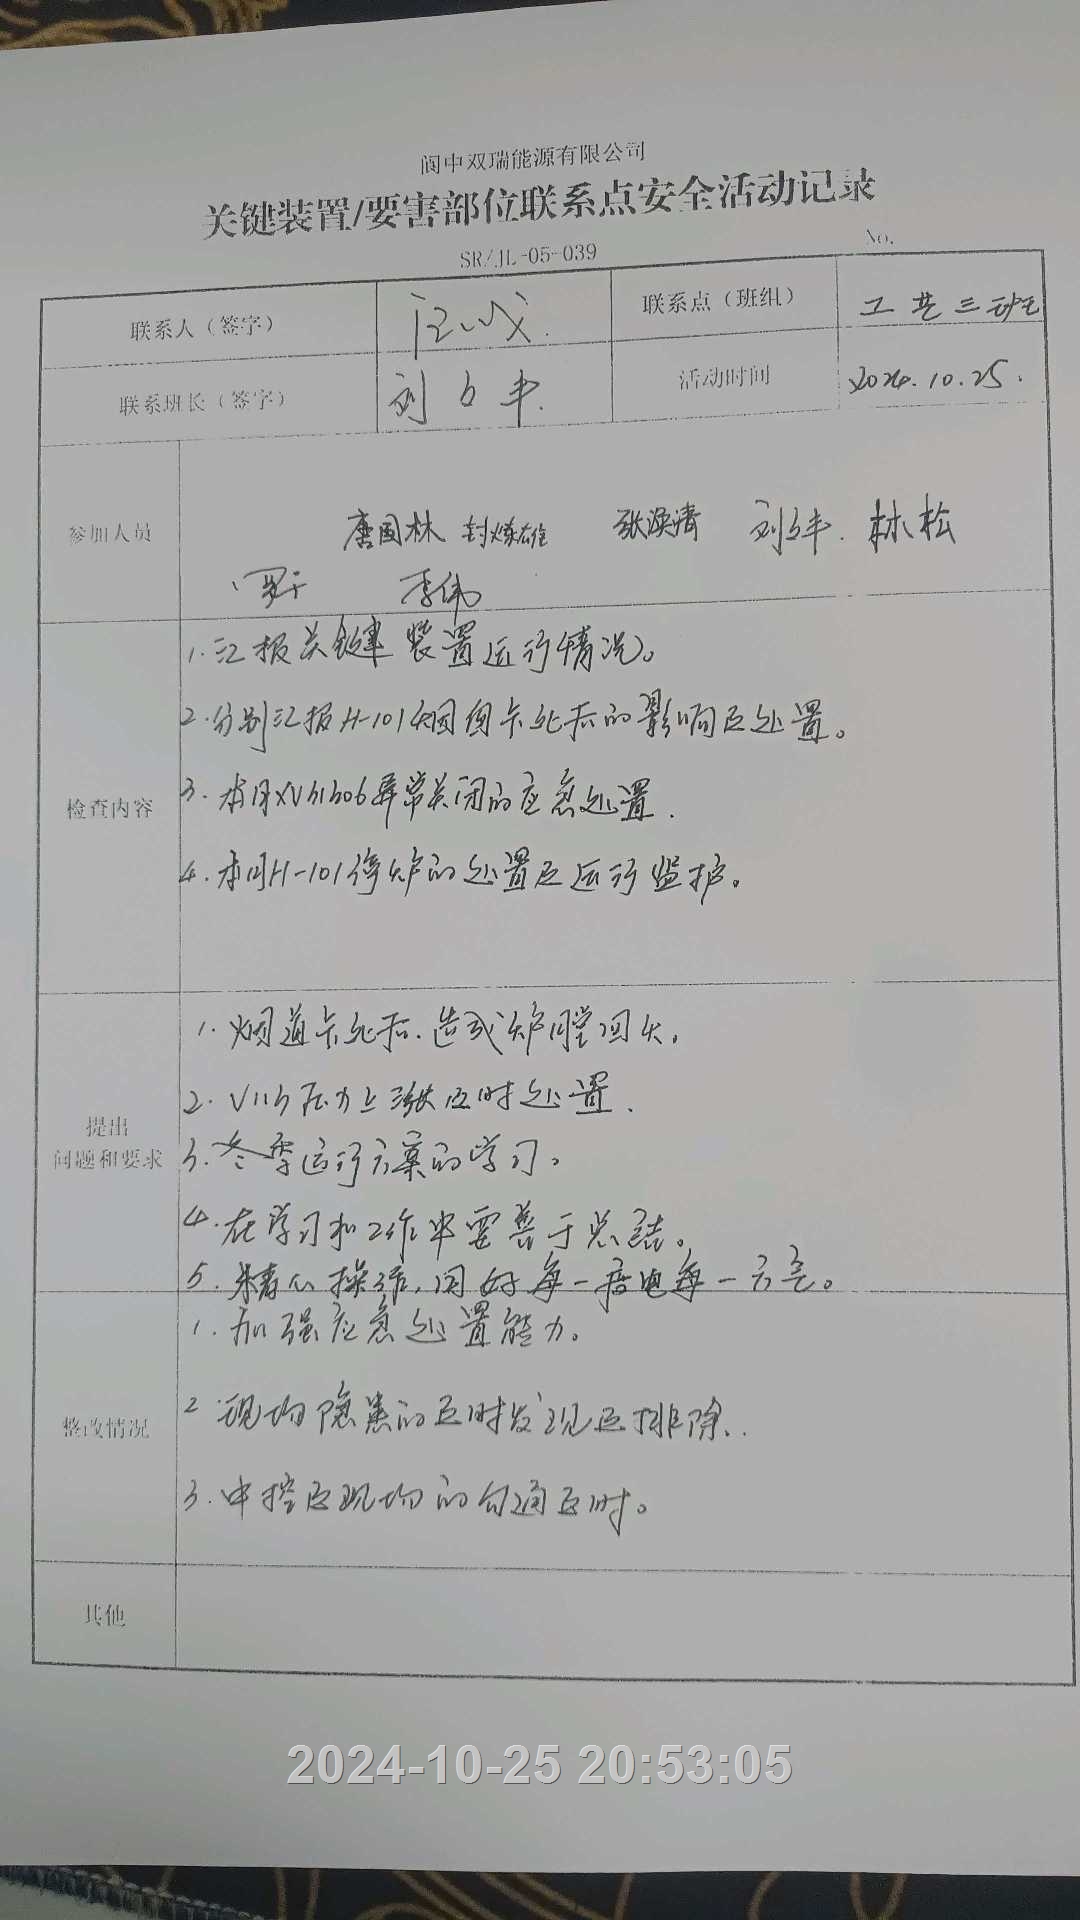 阆中双瑞能源有限公司
关键装置/要害部位联系点安全活动记录
SR/JL-05-039
No.
联系人（签字）
联系点（班组） 工艺三班
联系班长（签字） 刘
活动时间 2024.10.25.
参加人员 唐国林 封炼雄 张涣清 刘 林松
李伟
检查内容
1.汇报关键装置运行情况。
2.分别汇报H-101烟囱卡死后的影响及处置。
3.本月XV51306异常关闭的应急处置.
4.本月H-101停炉的处置及运行监护。
提出
问题和要求
1.烟道卡死后.造成炉膛回火。
2.V115压力上涨应时处置.
3.冬季运行方案的学习。
4.在学习和工作中要善于总结。
5.精心操作,用好每一度电每一方气。
整改情况
1.加强应急处置能力。
2 现场隐患的及时发现及排除.
3.中控及现场的勾通及时。
其他
2024-10-25 20:53:05